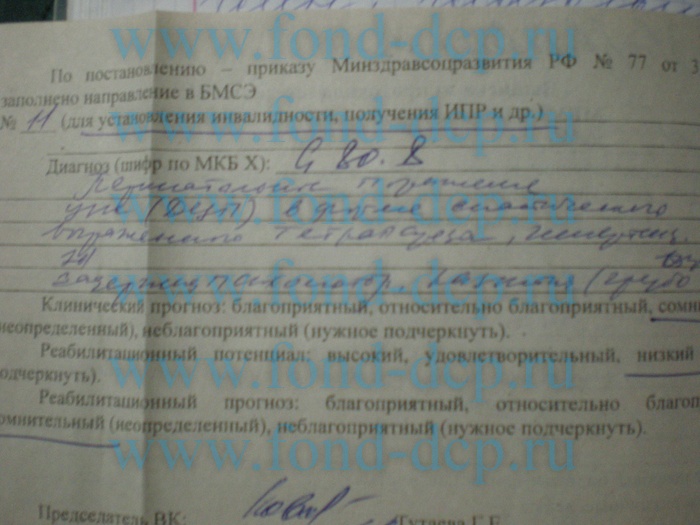 www.fond-dcp.ru
По постановлению – приказу Минздравсоцразвития РФ № 77 от 3
заполнено направление в БМСЭ
№ 11 (для установления инвалидности, получения ИПР и др.)
Диагноз (шифр по МКБ X): G 80.8
www.fond-dcp.ru
Перинатальное поражение
ЦНС (ДЦП) в форме спастического
выраженного тетрапареза,
задержка
www.fond-dcp.ru
Клинический прогноз: благоприятный, относительно благоприятный, сомн
неопределенный), неблагоприятный (нужное подчеркнуть).
Реабилитационный потенциал: высокий, удовлетворительный, низкий
одчеркнуть).
www.fond-dcp.ru
Реабилитационный прогноз: благоприятный, относительно благоп
омнительный (неопределенный), неблагоприятный (нужное подчеркнуть).
www.fond-dcp.ru
Председатель ВК: Гутаева Г.Г.